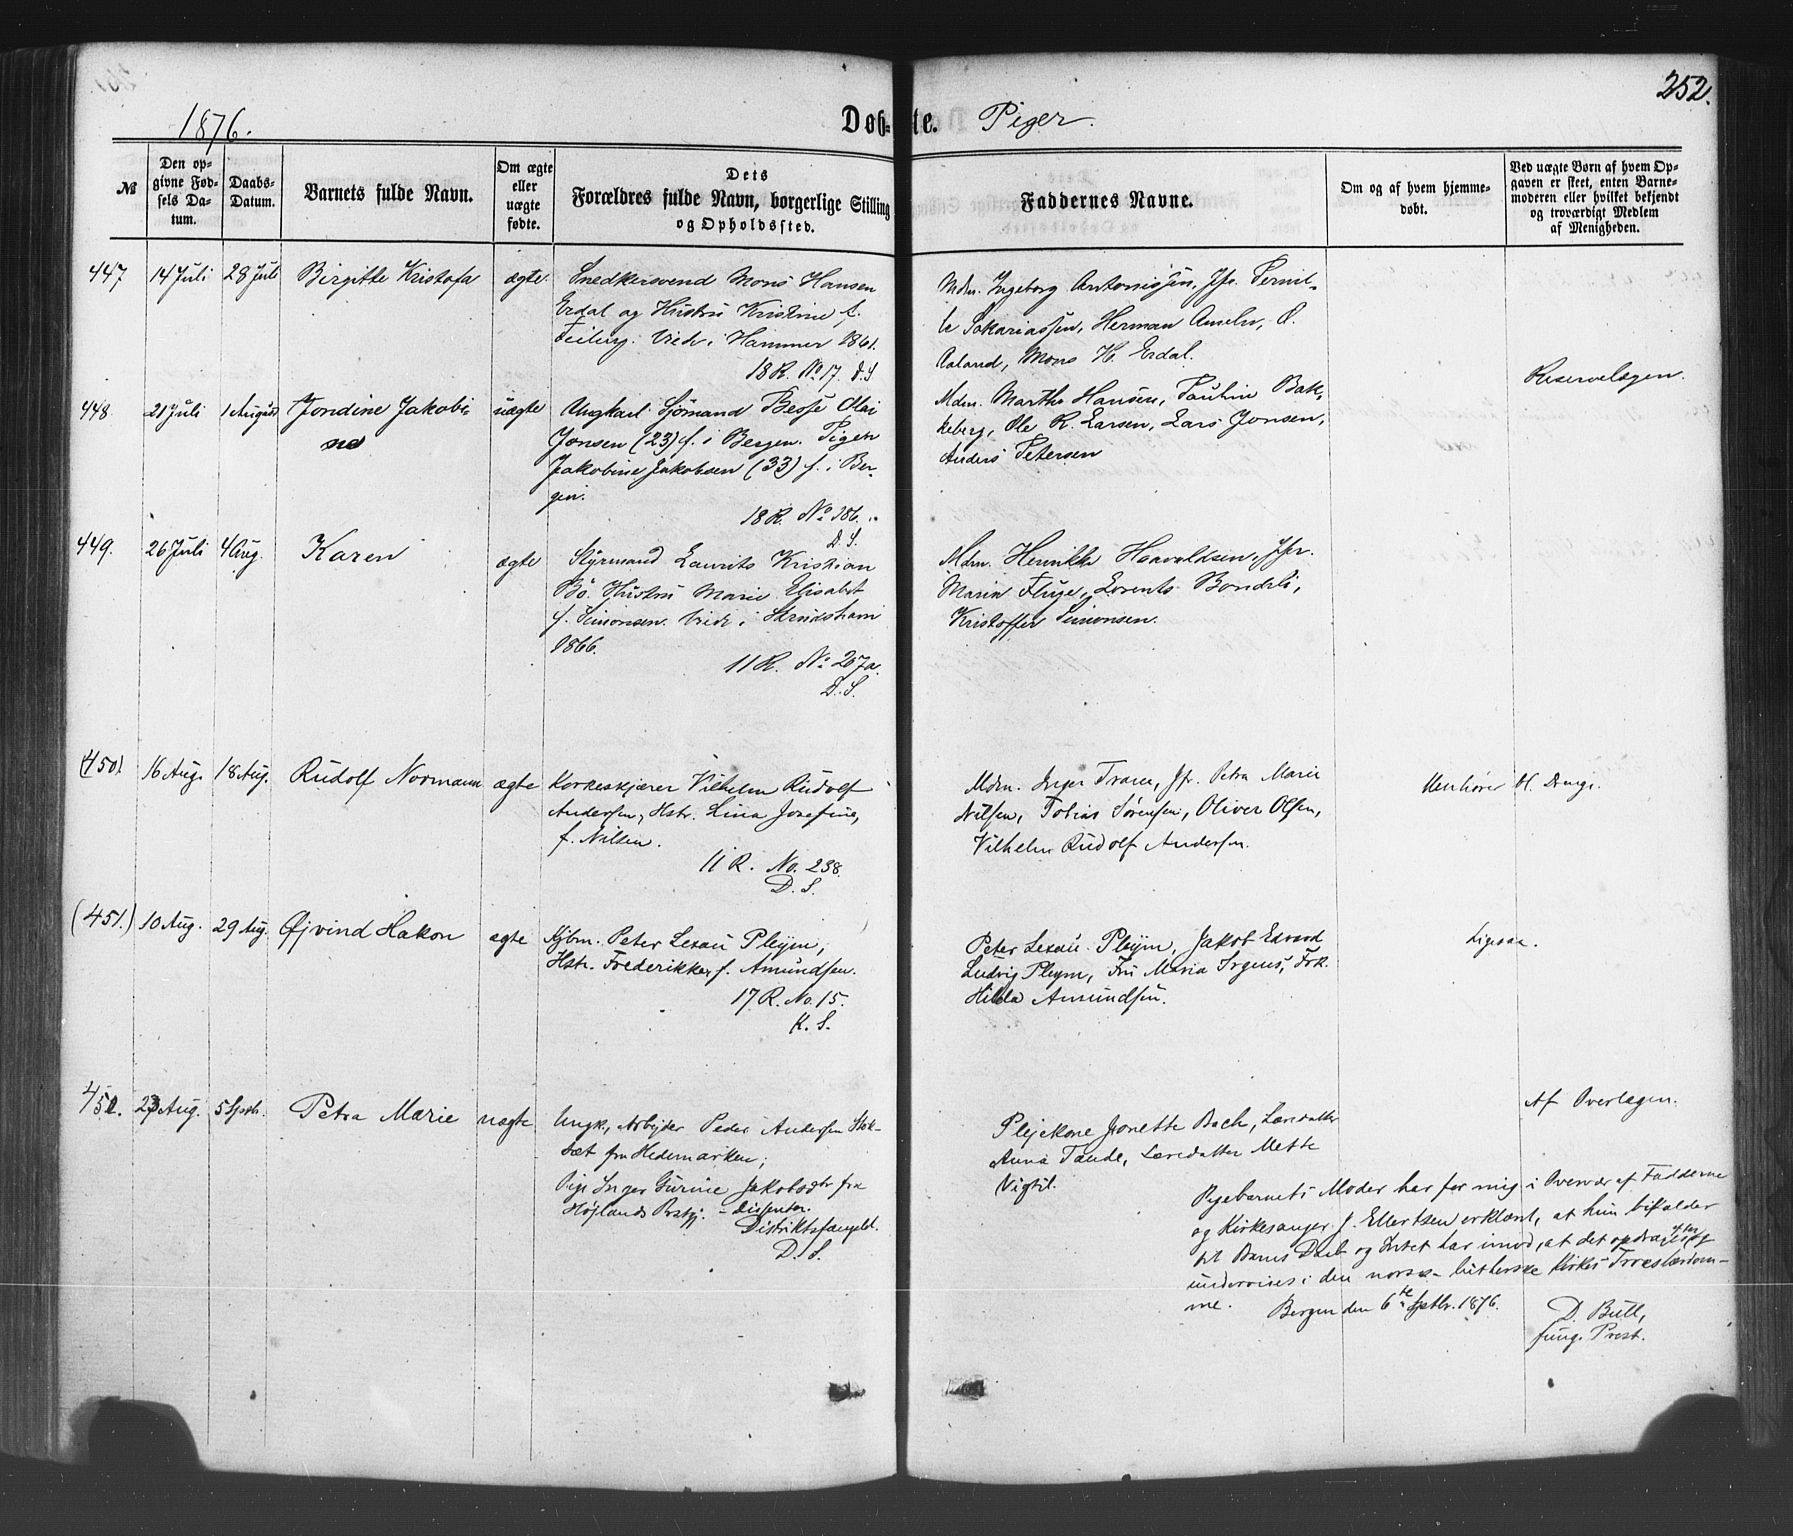 252.
1876.
Døb-te. Piger.
№
Den op-
givne Fød-
sels Da-
tum.
Daabs-
Datum.
Barnets fulde Navn.
Om ægte
eller
uægte
fødte.
Dets
Forældres fulde Navn, borgerlige Stilling
og Opholdssted.
Faddernes Navne.
Om og af hvem hjemme-
døbt.
Ved uægte Børn af hvem Op-
gaven er skeet, enten Barne-
moderen eller hvilket bekjendt
og troværdigt Medlem
af Menigheden.
447 14 Juli 28 Juli Birgitte Kristofa ægte.
Snedkersvend Mons Hansen
Erdal og Hustru Kristine f.
Viede i Hammer 1861.
18 R. No 17. D.S
Mdm. Ingeborg Antonissen, Jfr. Pernil-
le Sakariassen, Herman Ameln, O.
Aaland, Mons H. Erdal.
448. 21 Juli 1 August Jondine Jakobi-
ne
uægte
Ungkarl Sjømand Besse Olai
Jonsen (23) f. i Bergen. Pigen
Jakobine Jakobsen (33) f. i Ber-
gen.
18 R. No 186.
D.S.
Mdm. Marthe Hansen, Paulin Bak-
keberg, Ole R. Larsen, Lars Jonsen,
Anders Petersen
449. 26 Juli 4 Aug. Karen ægte
Styrmand Laurits Kristian
Bø. Hustru Marie Elisabet
f. Simonsen. Viede i
1866.
11 R. No 267a.
D.S.
Mdm. Henrikke Haavaldsen, Jfr.
Marin Fluge, Lorents Bondeli,
Kristoffer Simonsen.
(450). 16 Aug. 18 Aug. Rudolf Normann ægte
Korkeskjærer Vilhelm Rudolf
Andersen, Hstr. Lina Josefine,
f. Nilsen.
11 R. No. 238.
D.S.
Mdm. Inger Trane, Jfr. Petra Marie
Nilsen, Tobias Sørensen, Oliver Olsen,
Vilhelm Rudolf Andersen.
Henhører t. Drenge.
(451.) 10 Aug. 29 Aug. Øjvind Hakon ægte
Kjbm. Peter Lexau Pleym,
Hstr. Frederikke, f. Amundsen.
17 R. No. 15.
K.S.
Peter Lexau Pleym, Jakob Edvard
Ludvig Pleym, Fru Maria Irgens, Frk.
Hilda Amundsen.
Ligesaa.
452. 23 Aug. 5 Septb. Petra Marie uægte
Ungk., Arbejder Peder Andersen Stok-
sæt fra Hedemarken;
Pige Inger Gurine Jakobsdtr fra
Højlands Prstgj. - Dissenter.
Distriktsfængsl.
D.S.
Plejekone Jonette Bach, Læredatter
Anna Tande, Læredatter Mette
Vigtil.
Af Overlægen.
Pigebarnets Moder har for mig i Overvær af Fadderne
og Kirkesanger J. Ellertsen erklært, at hun bifalder
sit Barns Daab og Intet har imod, at det opdrages og
undervises i den norsk-lutherske Kirkes Troeslærdom-
me. Bergen den 6te Septbr. 1876.
D. Bull,
fung. Prest.